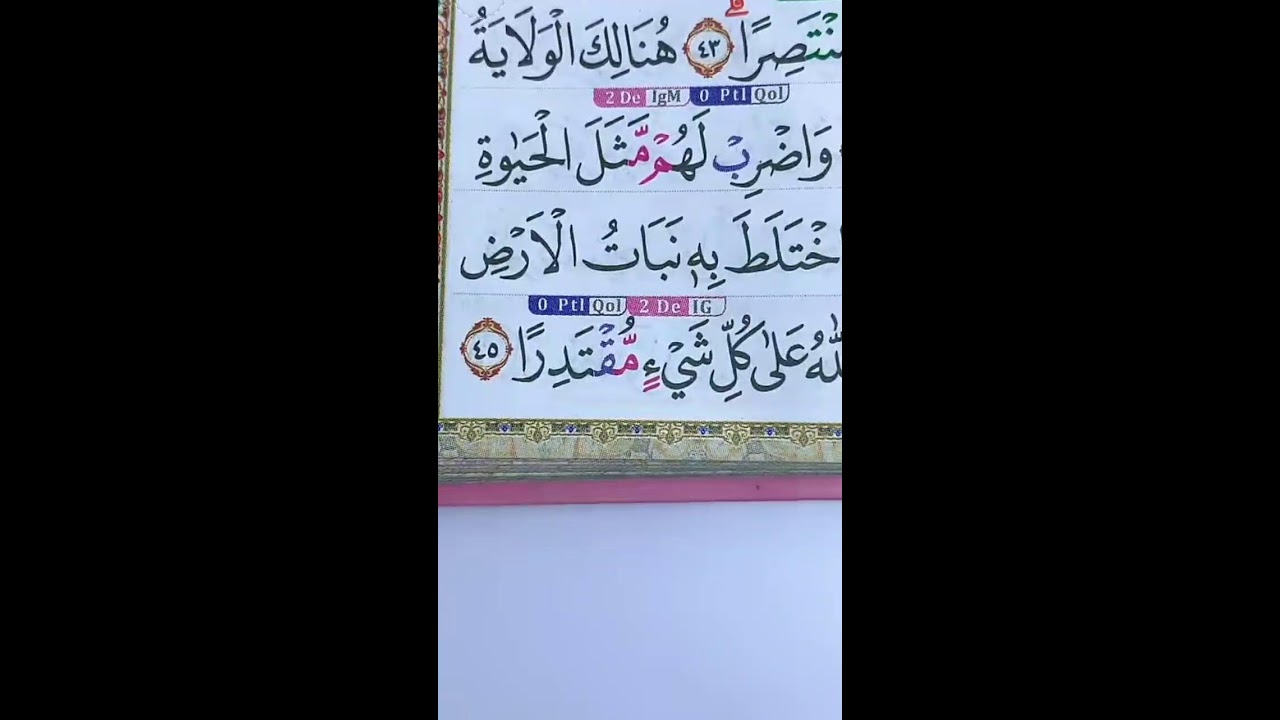 نْتَصِرًا ۗ ٤٣ هُنَالِكَ الْوَلَايَةُ
2 De IgM 0 Ptl Qol
وَاضْرِبْ لَهُمْ مَّثَلَ الْحَيٰوةِ
اخْتَلَطَ بِهٖ نَبَاتُ الْاَرْضِ
0 Ptl Qol 2 De IG
للّٰهُ عَلٰى كُلِّ شَيْءٍ مُّقْتَدِرًا ٤٥